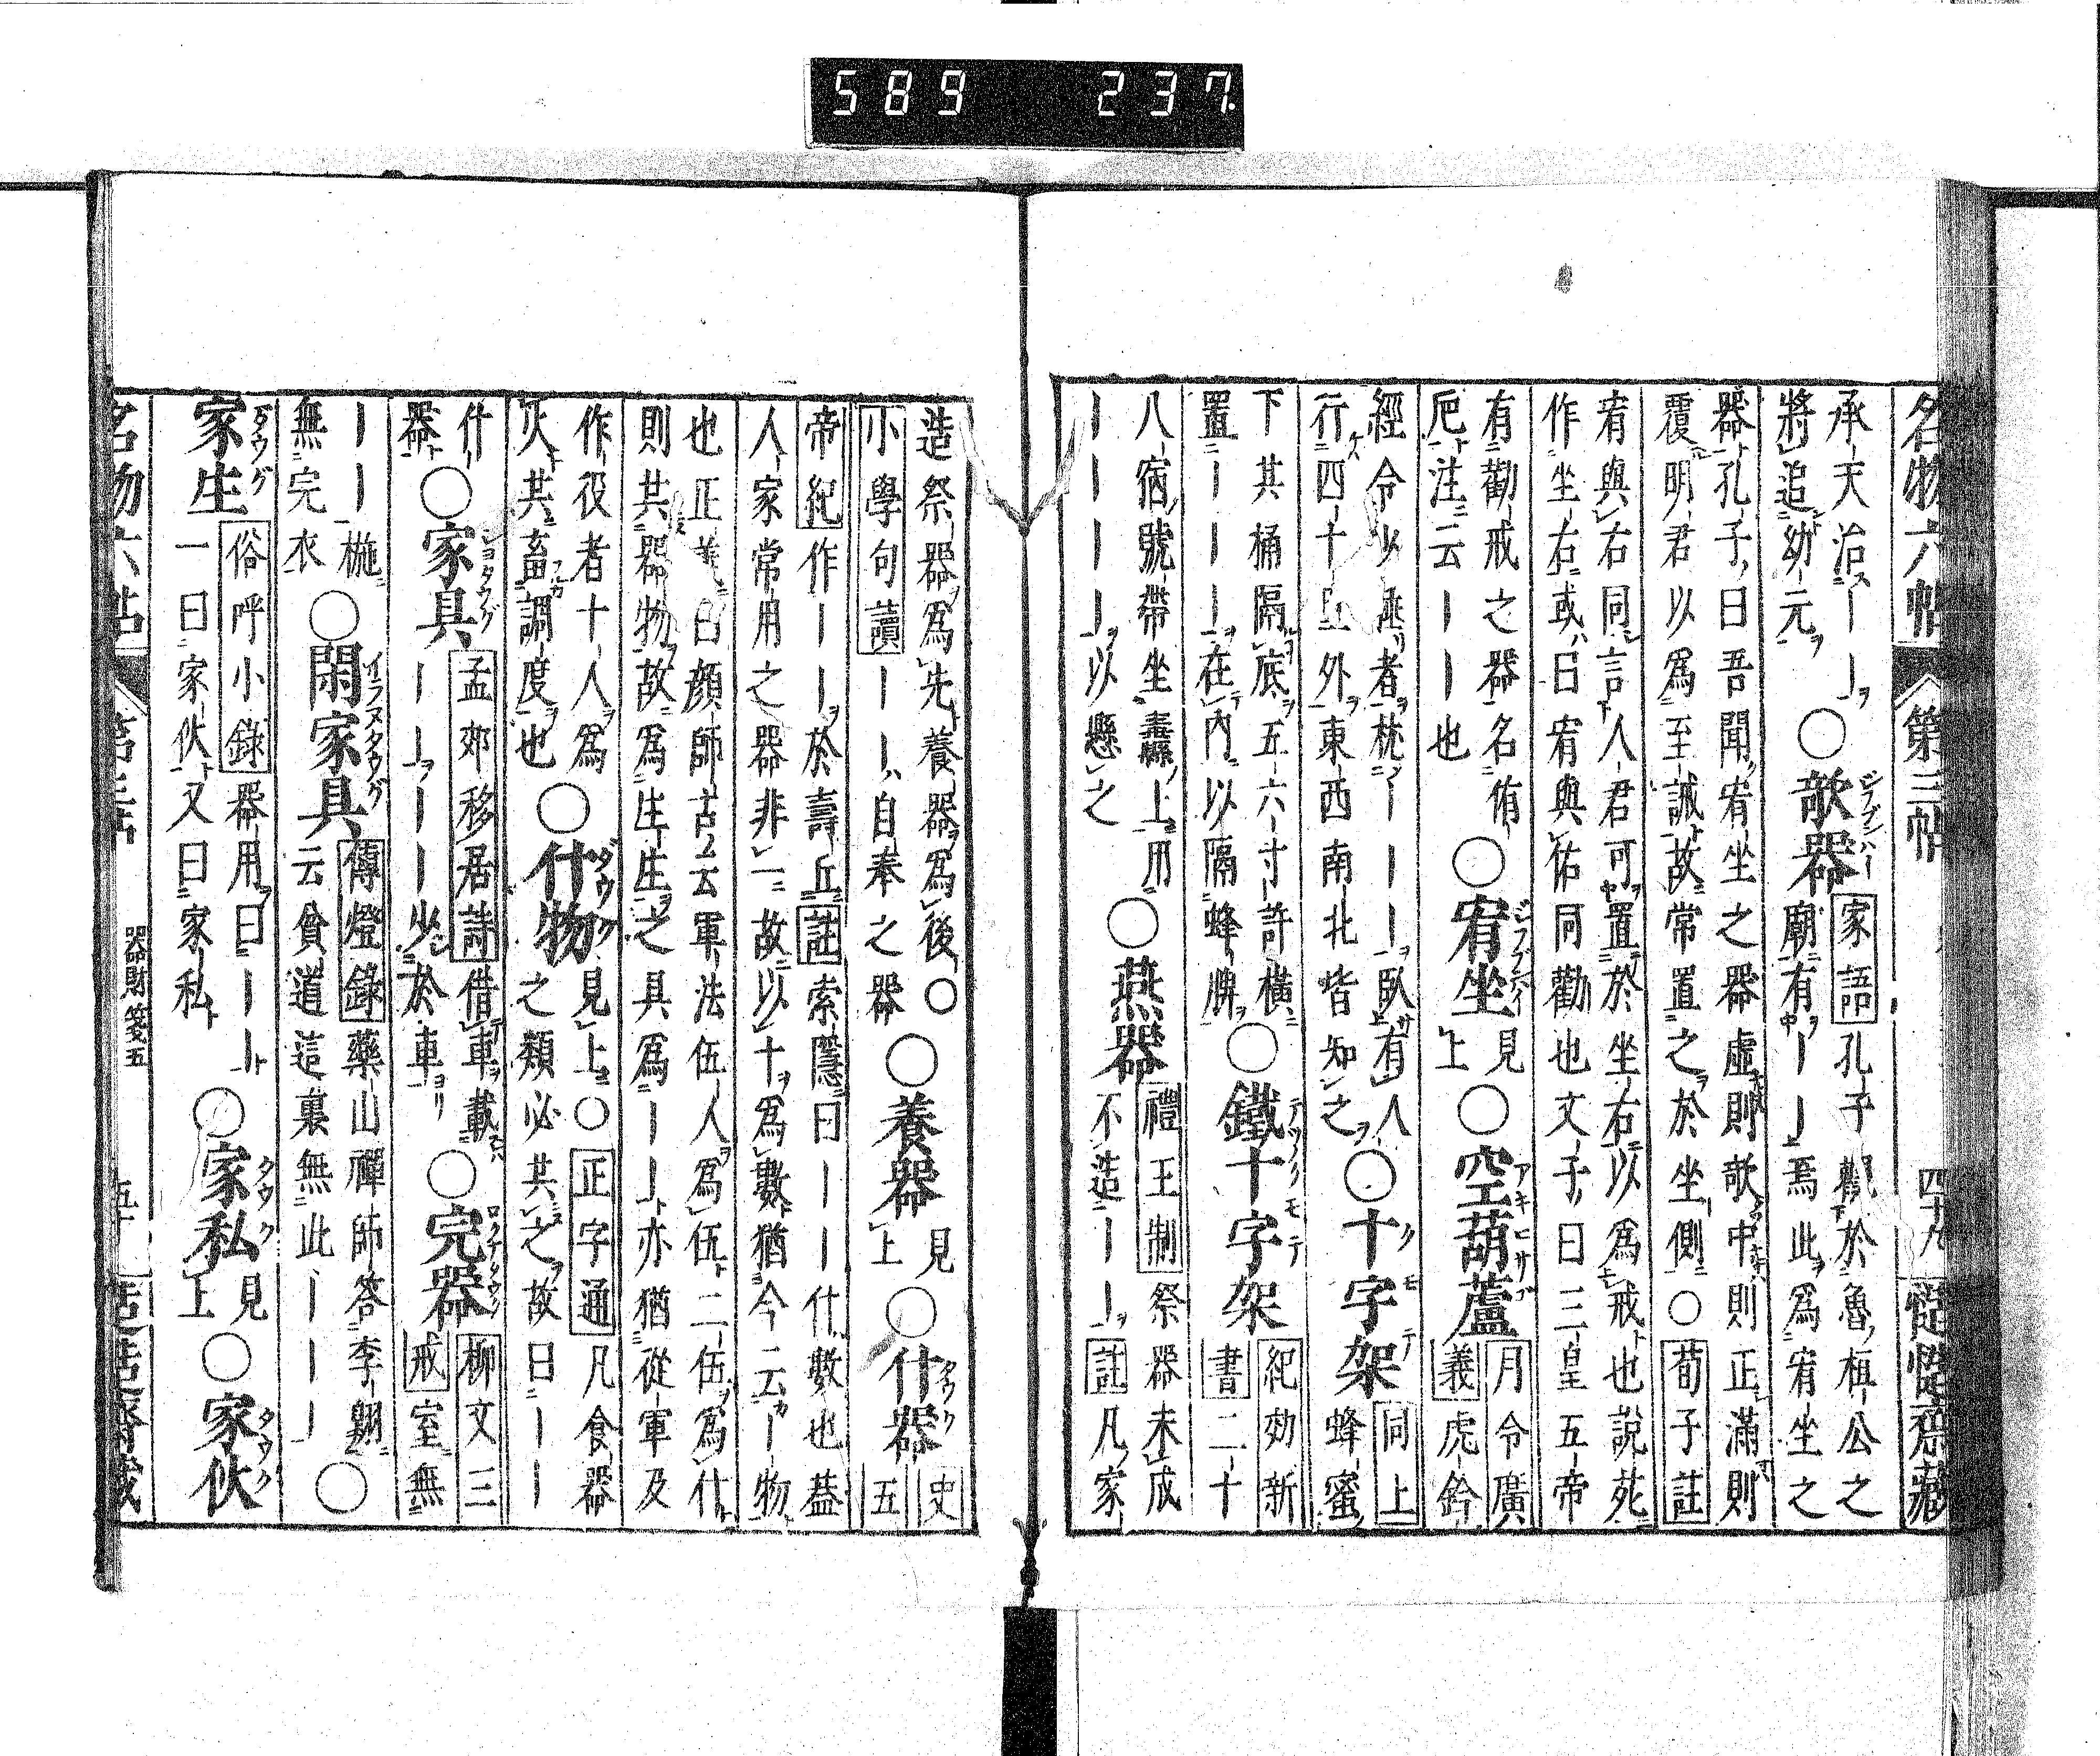 589 237
名物六帖 第三帖 四十九 慥慥齋藏
承天治――ヲ ○欹器 家語 孔子觀於魯桓公之
將追幼元 廟有――焉此爲宥坐之
器孔子曰吾聞宥坐之器虛則欹中則正滿則
覆明君以爲至誡故常置之於坐側○荀子註
宥與右同言人君可置於坐右以爲戒也說苑
作坐右或曰宥與佑同勸也文子曰三皇五帝
有勸戒之器名侑 ○宥坐 見上 ○空葫蘆 月令廣
巵注云――也 義 虎鈐
經令少 者枕――――臥有人 ○十字架 同上
行四十 外東西南北皆知之 蜂蜜
下其桶隔底五六寸許橫 ○鐵十字架 紀効新
置――――在內以隔蜂脾 書 二十
八宿號帶坐纛上用 ○燕器 禮王制 祭器未成
――――以懸之 不造―― 註 凡家
造祭器爲先養器爲後○ ○養器 見上 ○什器 史
小學句讀――自奉之器 五
帝紀 作――於壽丘 註 索隱曰――什數也蓋
人家常用之器非一故以十爲數猶今云―物
也正義曰顏師古云軍法伍人爲伍二伍爲什
則共器物故爲生生之具爲――亦猶從軍及
作役者十人爲 ○什物 見上○正字通 凡食器
火共畜調度也 之類必共之故曰――
什 ○家具 孟郊移居詩 借車載 ○完器 柳文三
器 ――――少於車 戒 室無
――椸 ○閑家具 傳燈錄 藥山禪師答李翺
無完衣 云貧道這裏無此――― ○
家生 俗呼小錄 器用曰―― ○家私 見上 ○家伙
一曰家伙又曰家私
器財箋五